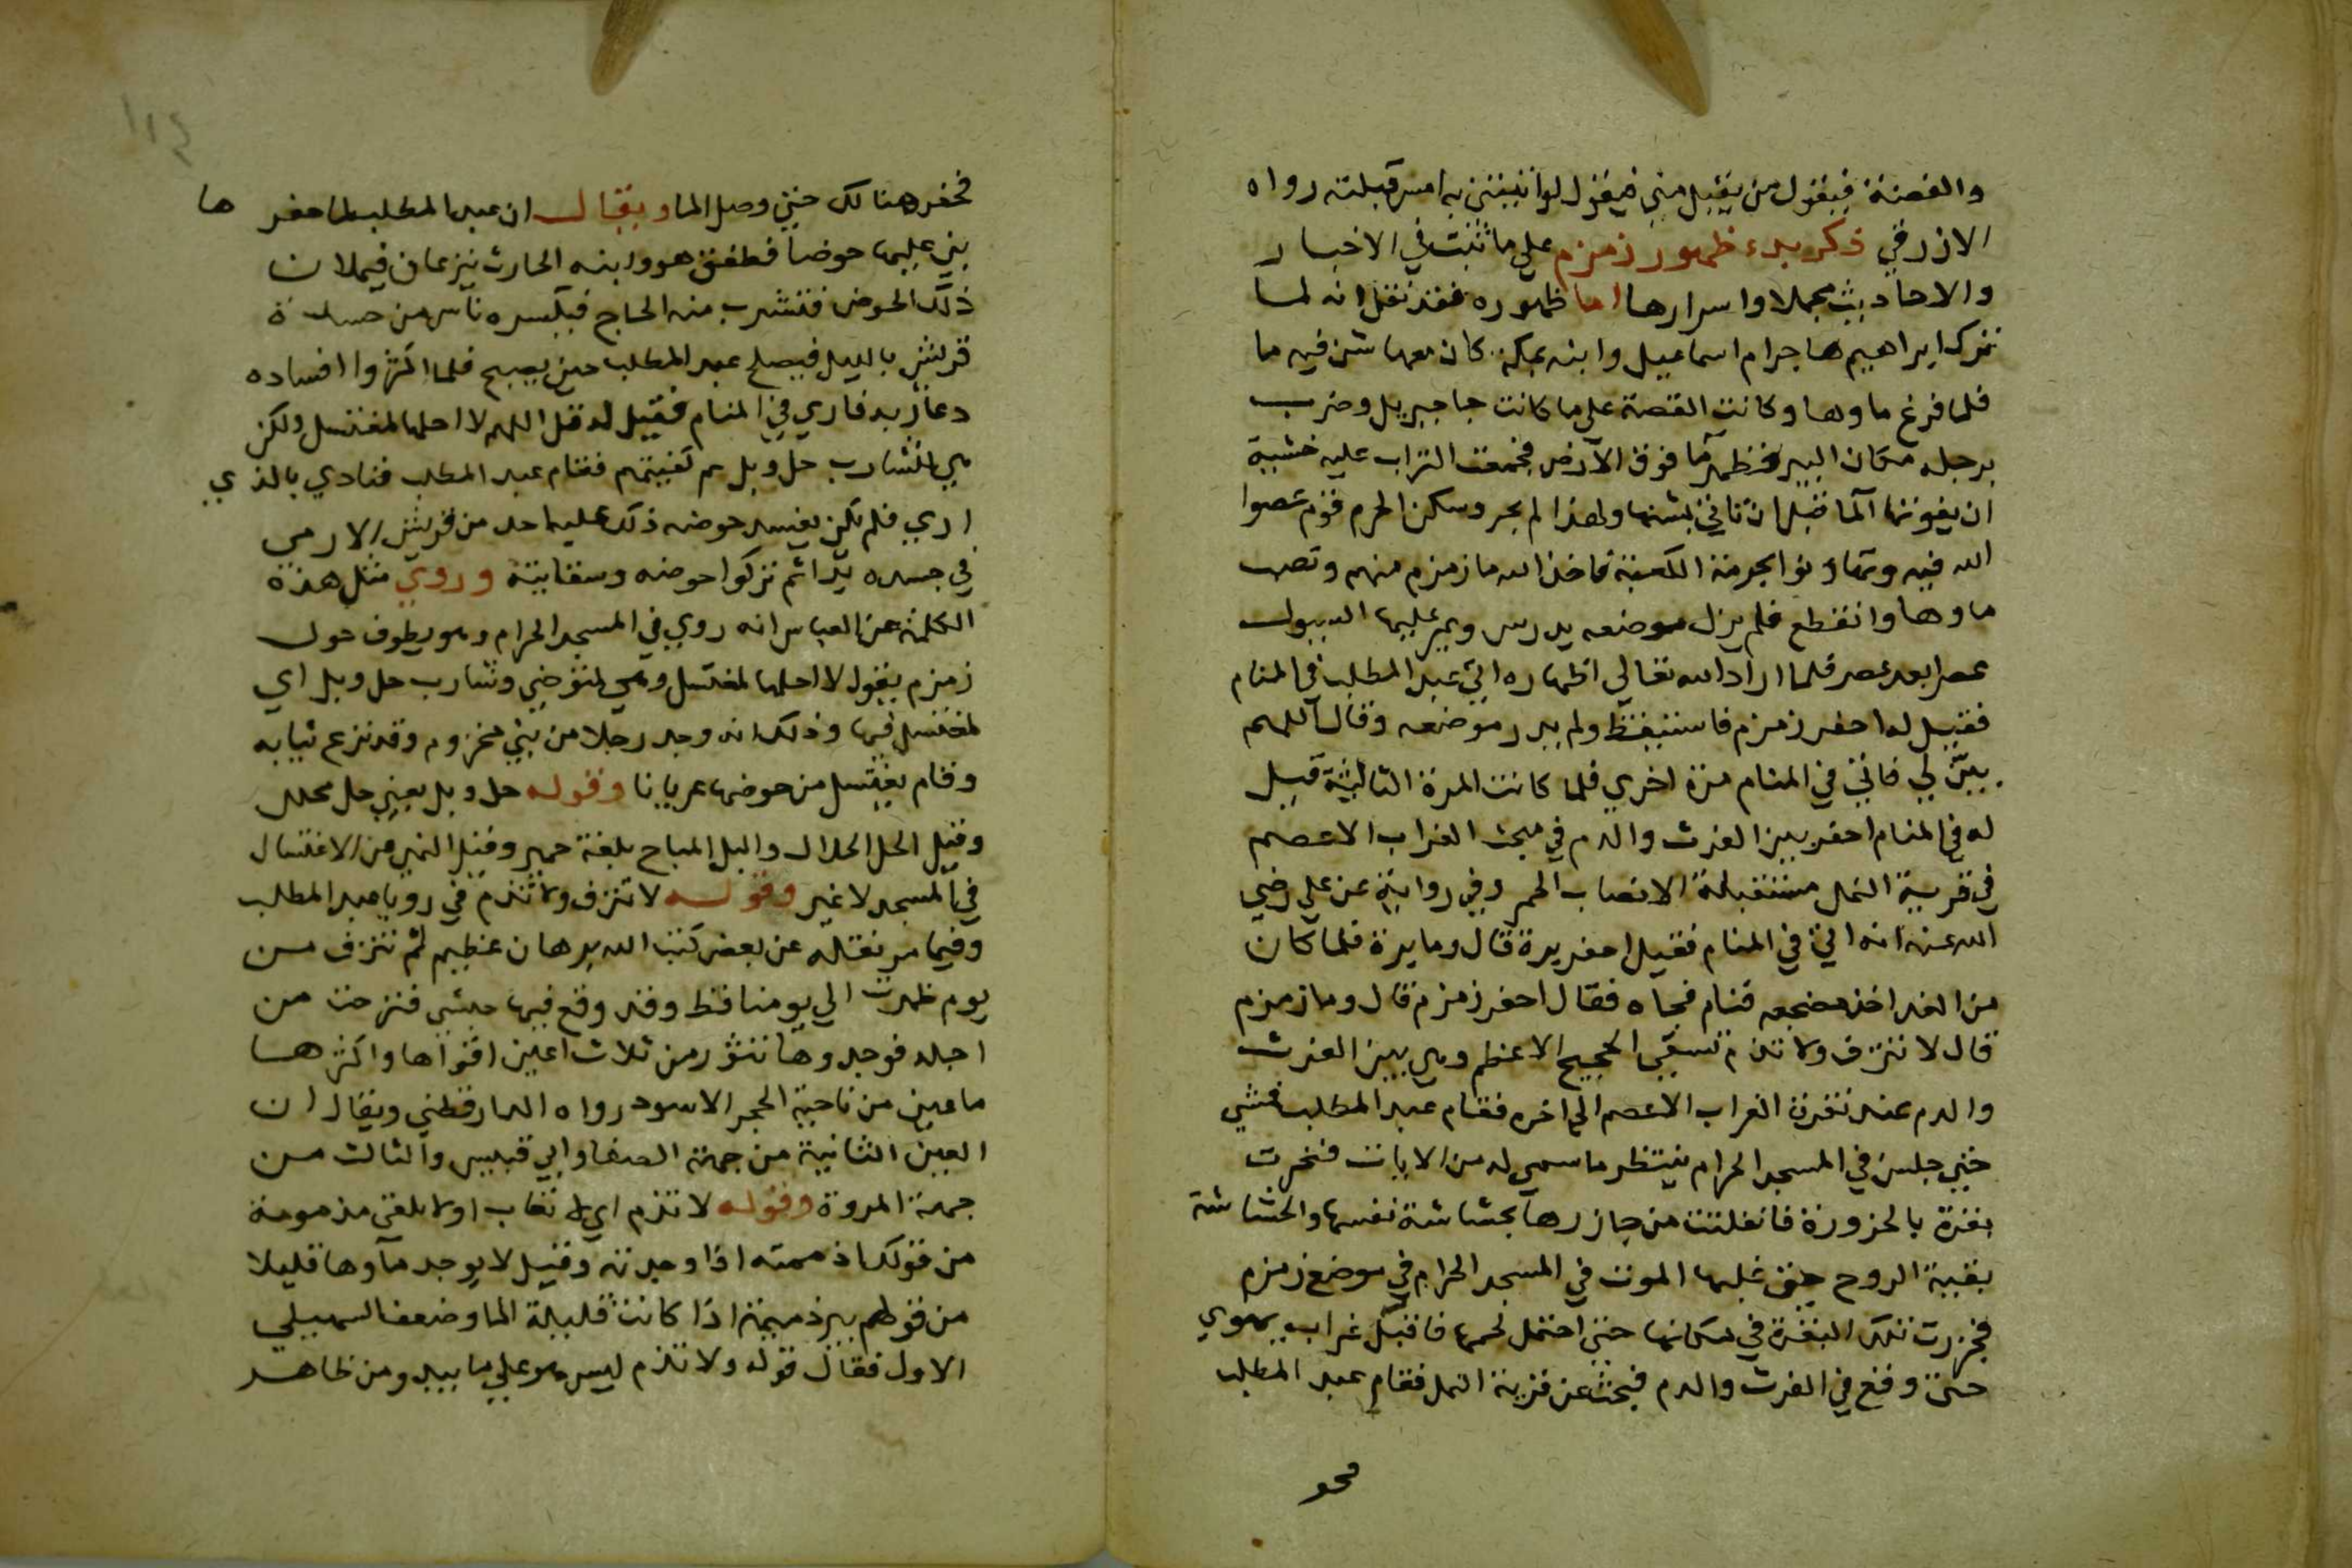 والفضة فيقول من يقبل مني فيقول لو اتيتني به امس قبلته رواه
الازرقي ذكر بدء ظهور زمزم علي ما ثبت في الاخبار
والاحاديث مجملا واسرارها اما ظهوره فقد نقل انه لما
ترك ابراهيم هاجر ام اسماعيل وابنه بمكة كان معها شن فيه ما
فلما فرغ ماوها وكانت القصة علي ما كانت جا جبريل وضرب
برجله مكان البير فظهر ما فوق الارض فجمعت التراب عليه خشية
ان يفوتها الما قبل ان تاتي بشنها ولهذا لم يجر وسكن الحرم قوم عصوا
الله فيه وتهاونوا بحرمة الكعبة فاخذ الله ما زمزم منهم ونضب
ماوها وانقطع فلم يزل موضعه يدرس ويمر عليها السيول
عصرا بعد عصر فلما اراد الله تعالي اظهاره اتي عبد المطلب في المنام
فقيل له احفر زمزم فاستيقظ ولم يدر موضعه وقال اللهم
بين لي فاتي في المنام مرة اخري فلما كانت المرة الثالثة قيل
له في المنام احفر بين الفرث والدم في مبحث الغراب الاعصم
في قرية النمل مستقبلة الانصاب الحمر وفي رواية عن علي رضي
الله عنه انه اتي في المنام فقيل احفر برة قال وما برة فلما كان
من الغد اخذ مضجعه فنام فجاه فقال احفر زمزم قال وما زمزم
قال لا تنزف ولا تذم تسقي الحجيج الاعظم وهي بين الفرث
والدم عند نقرة الغراب الاعصم الي اخره فقام عبد المطلب فمشي
حتي جلس في المسجد الحرام ينتظر ما سمي له من الايات فنحرت
بقرة بالحزورة فانفلتت من جازرها بحشاشة نفسها والحشاشة
بقية الروح حتي غلبها الموت في المسجد الحرام في موضع زمزم
فجزرت تلك البقرة في مكانها حتي احتمل لحمها فاقبل غراب يهوي
حتي وقع في الفرث والدم فبحث عن قرية النمل فقام عبد المطلب
فحفر
فحفر هنالك حتي وصل الما ويقال ان عبد المطلب لما حفرها
بني عليها حوضا فطفق هو وابنه الحارث ينزعان فيملان
ذلك الحوض فتشرب منه الحاج فيكسره ناس من حسدة
قريش بالليل فيصلح عبد المطلب حين يصبح فلما اكثروا افساده
دعا ربه فاري في المنام فقيل له قل اللهم لا احلها لمغتسل ولكن
هي لشارب حل وبل ثم كفيتهم فقام عبد المطلب فنادي بالذي
اري فلم يكن يفسد حوضه ذلك عليه احد من قريش الا رمي
في جسده بدا ثم تركوا حوضه وسقايته وروي مثل هذه
الكلمة عن العباس انه روي في المسجد الحرام وهو يطوف حول
زمزم يقول لا احلها لمغتسل وهي لمتوضي وشارب حل وبل اي
لمغتسل فيها وذلك انه وجد رجلا من بني مخزوم وقد نزع ثيابه
وقام يغتسل من حوضها عريانا وقوله حل وبل يعني حل محلل
وقيل الحل الحلال والبل المباح بلغة حمير وقيل النهي من الاغتسال
في المسجد لا غير وقوله لا تنزف ولا تذم في رويا عبد المطلب
وفيما مر نقله عن بعض كتب الله برهان عظيم لم تنزف من
يوم ظهرت الي يومنا قط وقد وقع فيها حبشي فنزحت من
اجله فوجدوها تثور من ثلاث اعين اقواها واكثرها
ما عين من ناحية الحجر الاسود رواه الدارقطني ويقال ان
العين الثانية من جهة الصفا وابي قبيس والثالث من
جهة المروة وقوله لا تذم اي لا تعاب او لا تلفي مذمومة
من قولك اذممته اذا وجدته وقيل لا يوجد ماوها قليلا
من قولهم بير ذميمة اذا كانت قليلة الما وضعف السهيلي
الاول فقال قوله ولا تذم ليس هو علي ما يبد ومن ظاهر